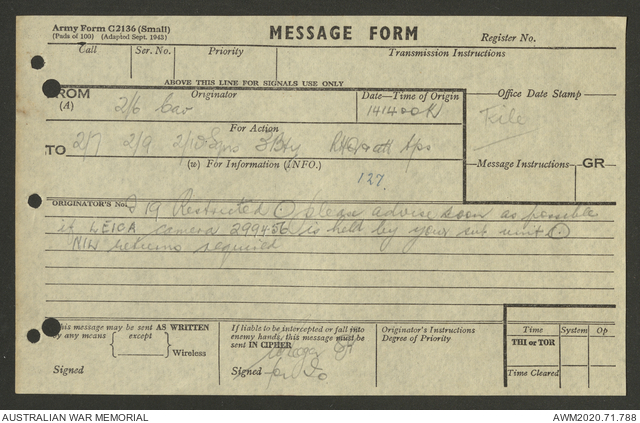 Army Form C2136 (Small)
(Pads of 100) (Adapted Sept. 1943)
MESSAGE FORM
Register No.
Call Ser. No. Priority Transmission Instructions
ABOVE THIS LINE FOR SIGNALS USE ONLY
FROM Originator Date—Time of Origin Office Date Stamp
(A) 2/6 Cav 141400K
File
For Action
TO 2/7 2/9 att
(w) For Information (INFO.) Message Instructions GR
127.
ORIGINATOR'S No. 19 Restricted . please advise soon as possible
if LEICA camera 299456 is held by your sub unit .
NIL returns required
This message may be sent AS WRITTEN
by any means except
Wireless
Signed
If liable to be intercepted or fall into
enemy hands, this message must be
sent IN CIPHER
Signed
Originator's Instructions
Degree of Priority
Time System Op
THI or TOR
Time Cleared
AUSTRALIAN WAR MEMORIAL AWM2020.71.788